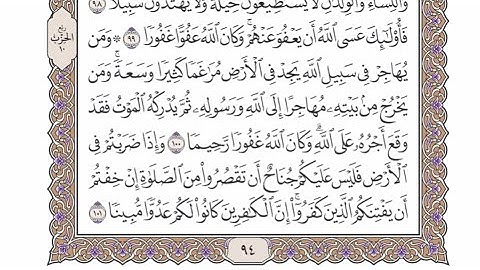 وَالنِّسَاءِ وَالْوِلْدَانِ لَا يَسْتَطِيعُونَ حِيلَةً وَلَا يَهْتَدُونَ سَبِيلًا ٩٨
فَأُولَٰئِكَ عَسَى اللَّهُ أَن يَعْفُوَ عَنْهُمْ ۚ وَكَانَ اللَّهُ عَفُوًّا غَفُورًا ٩٩ ۞ وَمَن
يُهَاجِرْ فِي سَبِيلِ اللَّهِ يَجِدْ فِي الْأَرْضِ مُرَاغَمًا كَثِيرًا وَسَعَةً ۚ وَمَن
يَخْرُجْ مِن بَيْتِهِ مُهَاجِرًا إِلَى اللَّهِ وَرَسُولِهِ ثُمَّ يُدْرِكْهُ الْمَوْتُ فَقَدْ
وَقَعَ أَجْرُهُ عَلَى اللَّهِ ۗ وَكَانَ اللَّهُ غَفُورًا رَّحِيمًا ١٠٠ وَإِذَا ضَرَبْتُمْ فِي
الْأَرْضِ فَلَيْسَ عَلَيْكُمْ جُنَاحٌ أَن تَقْصُرُوا مِنَ الصَّلَاةِ إِنْ خِفْتُمْ
أَن يَفْتِنَكُمُ الَّذِينَ كَفَرُوا ۚ إِنَّ الْكَافِرِينَ كَانُوا لَكُمْ عَدُوًّا مُّبِينًا ١٠١
ربع
الحزب
١٠
٩٤